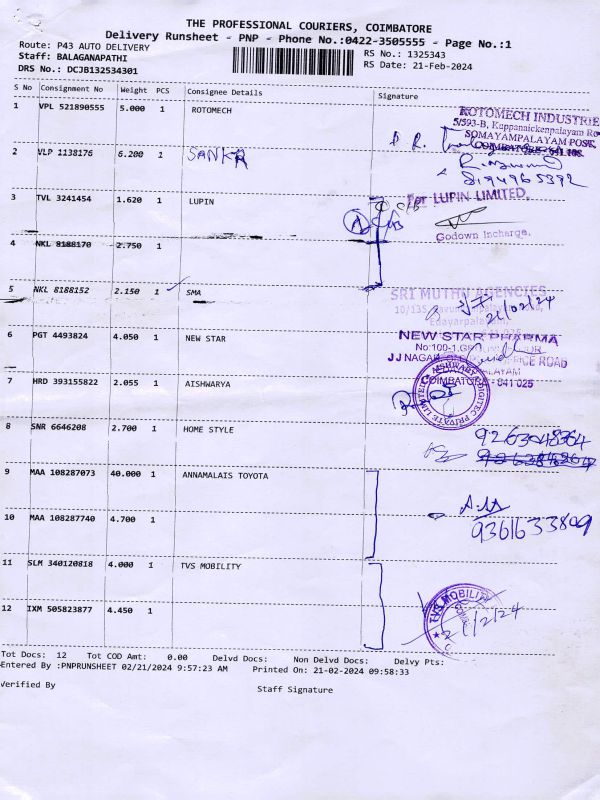 THE PROFESSIONAL COURIERS, COIMBATORE
Delivery Runsheet - PNP - Phone No.:0422-3505555 - Page No.:1
Route: P43 AUTO DELIVERY
RS No.: 1325343
Staff: BALAGANAPATHI
RS Date: 21-Feb-2024
DRS No.: DCJB132534301
S No Consignment No Weight PCS Consignee Details Signature
1 VPL 521890555 5.000 1 ROTOMECH
ROTOMECH INDUSTRIE
5/593-B, Kappannickenpalayam Ro
SOMAYAMPALAYAM POST,
COIMBATORE-641 108.
2 VLP 1138176 6.200 1 SANKR
8194965392
3 TVL 3241454 1.620 1 LUPIN
For LUPIN LIMITED,
Godown Incharge.
4 NKL 8188170 2.750 1
5 NKL 8188152 2.150 1 SMA
SRI MUTHU AGENCIES
21/02/24
6 PGT 4493824 4.050 1 NEW STAR
NEW STAR PHARMA
No:100-1,
JJ NAGAR ROAD
COIMBATORE - 641 025
7 HRD 393155822 2.055 1 AISHWARYA
8 SNR 6646208 2.700 1 HOME STYLE
9263048364
9 MAA 108287073 40.000 1 ANNAMALAIS TOYOTA
9361633809
10 MAA 108287740 4.700 1
11 SLM 340120818 4.000 1 TVS MOBILITY
TVS MOBILITY
21/2/24
12 IXM 505823877 4.450 1
Tot Docs: 12 Tot COD Amt: 0.00 Delvd Docs: Non Delvd Docs: Delvy Pts:
Entered By :PNPRUNSHEET 02/21/2024 9:57:23 AM Printed On: 21-02-2024 09:58:33
Verified By
Staff Signature